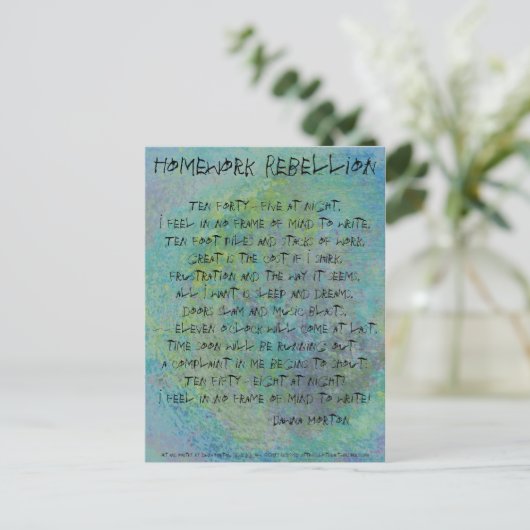 HOMEWORK REBELLION
TEN FORTY - FIVE AT NIGHT,
I FEEL IN NO FRAME OF MIND TO WRITE,
TEN FOOT PILES AND STACKS OF WORK,
GREAT IS THE COST IF I SHIRK,
FRUSTRATION AND THE WAY IT SEEMS,
ALL I WANT IS SLEEP AND DREAMS,
DOORS SLAM AND MUSIC BLASTS,
- - ELEVEN O'CLOCK WILL COME AT LAST.
TIME SOON WILL BE RUNNING OUT -
A COMPLAINT IN ME BEGINS TO SHOUT:
TEN FIFTY - EIGHT AT NIGHT!
I FEEL IN NO FRAME OF MIND TO WRITE!
- DAWNA MORTON